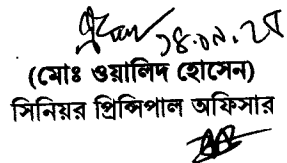 ১৪.০৯.২৫
(মোঃ ওয়ালিদ হোসেন)
সিনিয়র প্রিন্সিপাল অফিসার